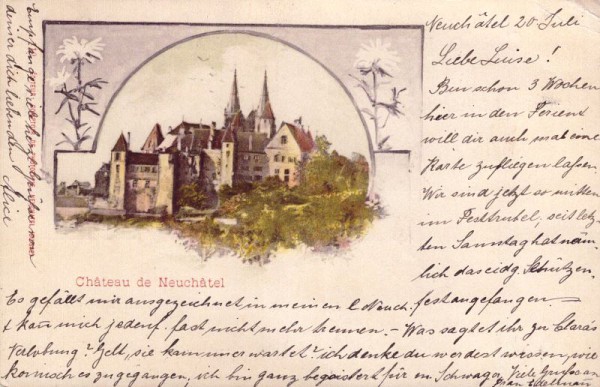 Neuchâtel 20 Juli
Liebe Luise!
Bin schon 3 Wochen
hier in den Ferien &
will dir auch mal eine
Karte zufliegen lassen.
Wir sind jetzt so mitten
im Festtrubel, seit letz-
ten Samstag hat näm-
lich das eidg. Schützen-
fest angefangen. —
Es gefällt mir ausgezeichnet in meinem l. Neuch.
& kann mich jedenf. fast nicht mehr trennen. - Was sagtet ihr zu Clara's
Verlobung? Gelt, sie kam unerwartet? ich denke du werdest wissen, wie
komisch es zugegangen, ich bin ganz begeistert für m. Schwager. Viele Grüsse an
Empfange viele
deiner dich liebenden Alice
Château de Neuchâtel